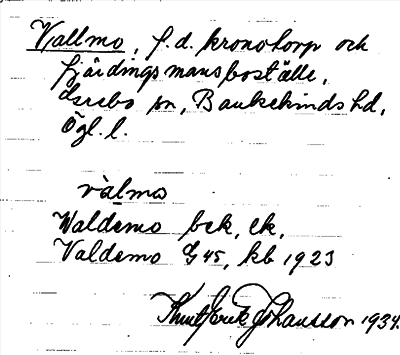 Vallmo, f.d. kronotorp och
fjärdingsmansboställe,
Asebo sn, Bankekinds hd,
Ögl. l.
valmo
Waldemo bek, ek,
Valdemo G 45, kb 1923
Knut Erik Johansson 1934.